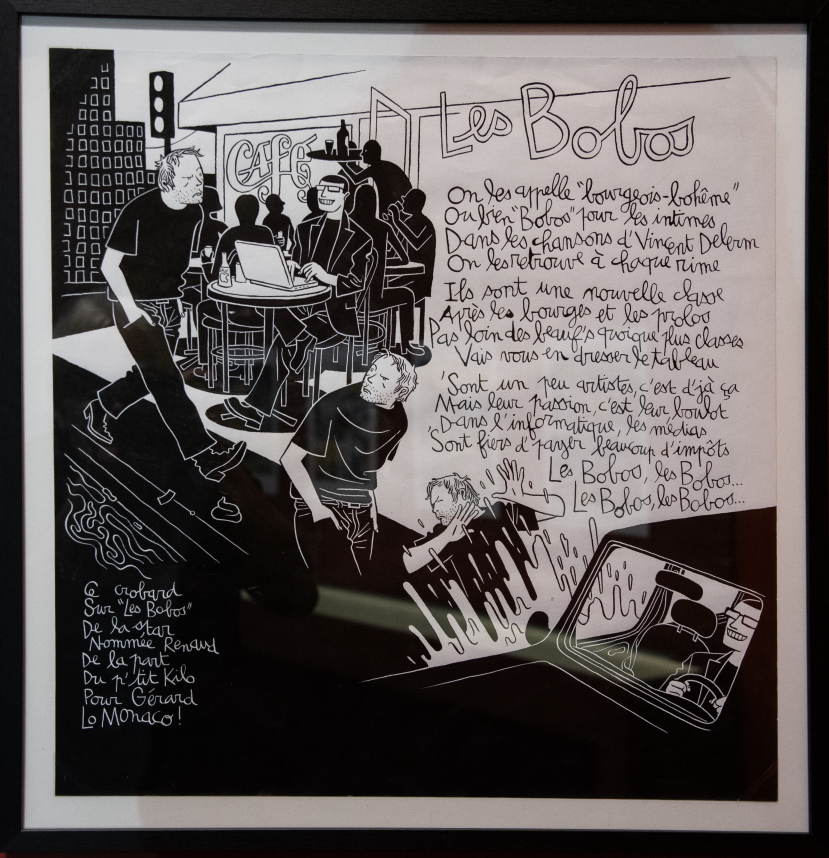 Les Bobos
CAFÉ
On les appelle "bourgeois-bohême"
Ou bien "Bobos" pour les intimes
Dans les chansons d'Vincent Delerm
On les retrouve à chaque rime
Ils sont une nouvelle classe
Après les bourges et les prolos
Pas loin des beaufs quoique plus classes
Vais vous en dresser le tableau
'Sont un peu artistes, c'est d'jà ça
Mais leur passion, c'est leur boulot
Dans l'informatique, les médias
'Sont fiers d'payer beaucoup d'impôts
Les Bobos, les Bobos...
Les Bobos, les Bobos...
Ce crobard
Sur "Les Bobos"
De la star
Nommée Renaud
De la part
Du p'tit Kilo
Pour Gérard
Lo Monaco!